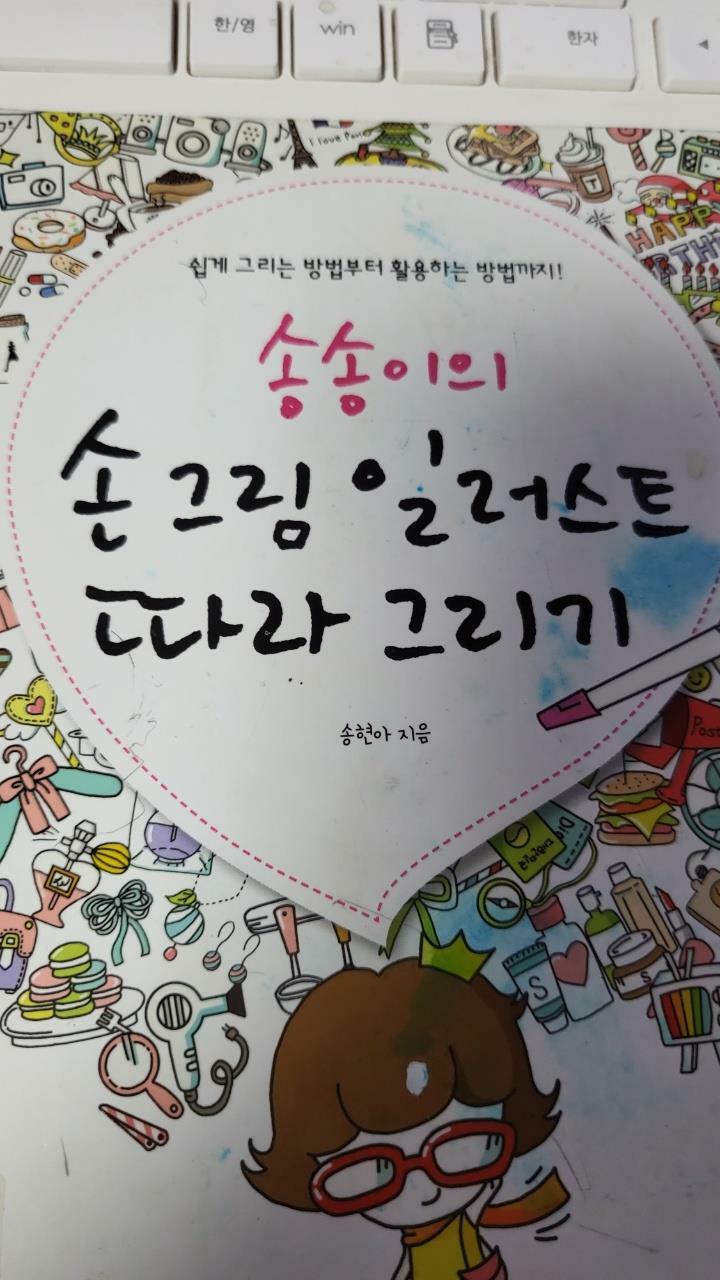 한/영
win
한자
I love Paris
T
HAPP
쉽게 그리는 방법부터 활용하는 방법까지!
송송이의
손그림 일러스트
따라 그리기
송현아 지음
Post
S
S